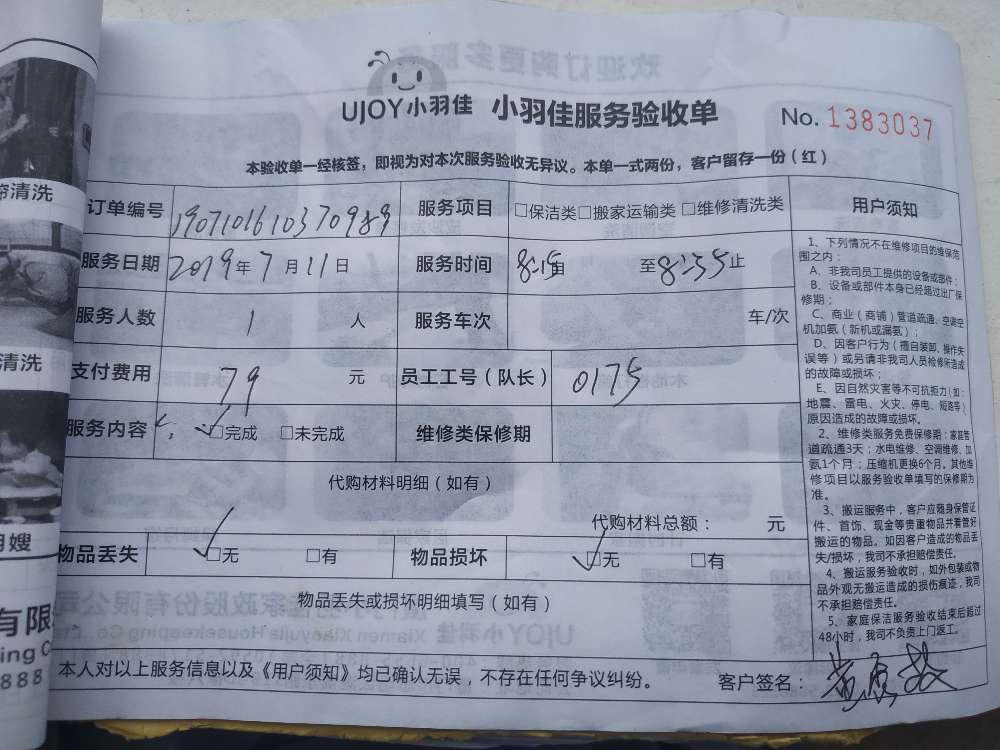 UJOY小羽佳 小羽佳服务验收单 No. 1383037
本验收单一经核签，即视为对本次服务验收无异议。本单一式两份，客户留存一份（红）
订单编号 1907101610370989 服务项目 □保洁类□搬家运输类□维修清洗类
服务日期 2019年7月11日 服务时间 8:15 至8:35止
服务人数 1 人 服务车次 车/次
支付费用 79 元 员工工号（队长） 0175
服务内容 ✓□完成 □未完成 维修类保修期
代购材料明细（如有）
代购材料总额： 元
物品丢失 ✓□无 □有 物品损坏 ✓□无 □有
物品丢失或损坏明细填写（如有）
本人对以上服务信息以及《用户须知》均已确认无误，不存在任何争议纠纷。 客户签名：
用户须知
1、下列情况不在维修项目的维保范
围之内：
A、非我司员工提供的设备或部件；
B、设备或部件本身已经超过出厂保
修期；
C、商业（商铺）管道疏通、空调空
机加氨（新机或漏氨）；
D、因客户行为（擅自装卸、操作失
误等）或另请非我司人员检修所造成
的故障或损坏；
E、因自然灾害等不可抗拒力（如：
地震、雷电、火灾、停电、短路等）
原因造成的故障或损坏。
2、维修类服务免费保修期：家庭管
道疏通3天；水电维修、空调维修、加
氨1个月；压缩机更换6个月。其他维
修项目以服务验收单填写的保修期为
准。
3、搬运服务中，客户应随身保管证
件、首饰、现金等贵重物品并看管好
搬运的物品。如因客户造成的物品丢
失/损坏，我司不承担赔偿责任。
4、搬运服务验收时，如外包装或物
品外观无搬运造成的损伤痕迹，我司
不承担赔偿责任。
5、家庭保洁服务验收结束后超过
48小时，我司不负责上门返工。
清洗
清洗
月嫂
有限
ing C
888